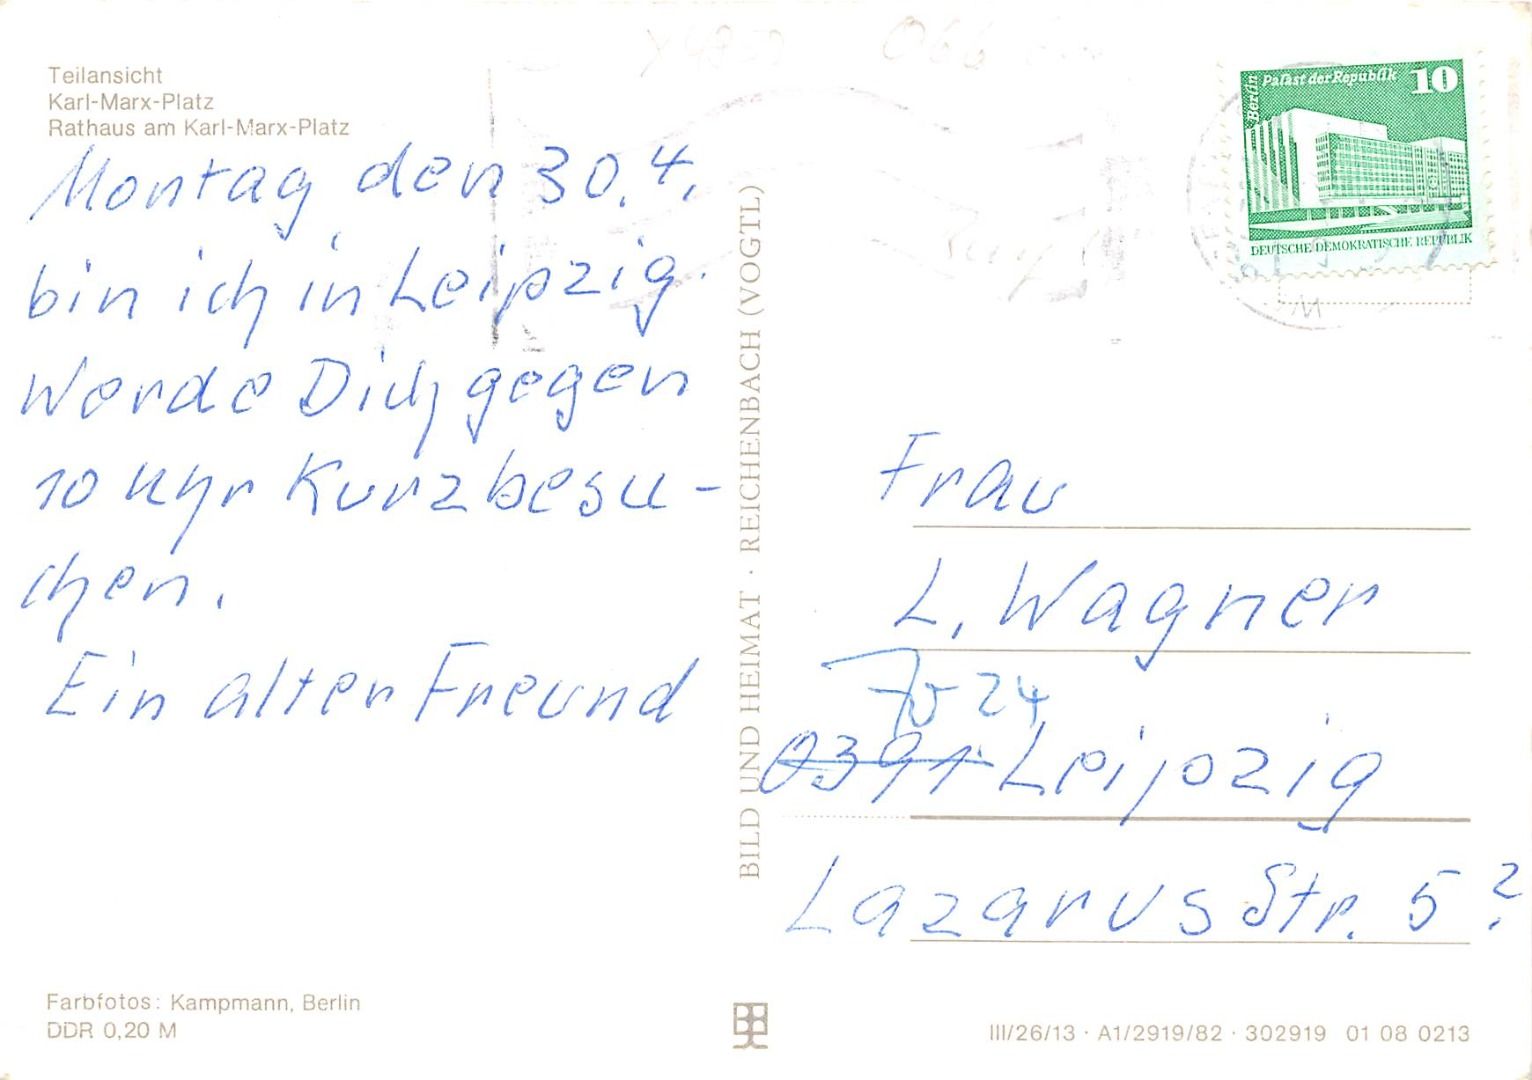 Teilansicht
Karl-Marx-Platz
Rathaus am Karl-Marx-Platz
Montag den 30.4.
bin ich in Leipzig.
Werde Dich gegen
10 Uhr Kurzbesu-
chen.
Ein alter Freund
Farbfotos: Kampmann, Berlin
DDR 0,20 M
BILD UND HEIMAT · REICHENBACH (VOGTL)
Berlin
Palast der Republik 10
DEUTSCHE DEMOKRATISCHE REPUBLIK
Frau
L. Wagner
24
0391 Leipzig
Lazarus Str. 5 ?
III/26/13 · A1/2919/82 · 302919 01 08 0213